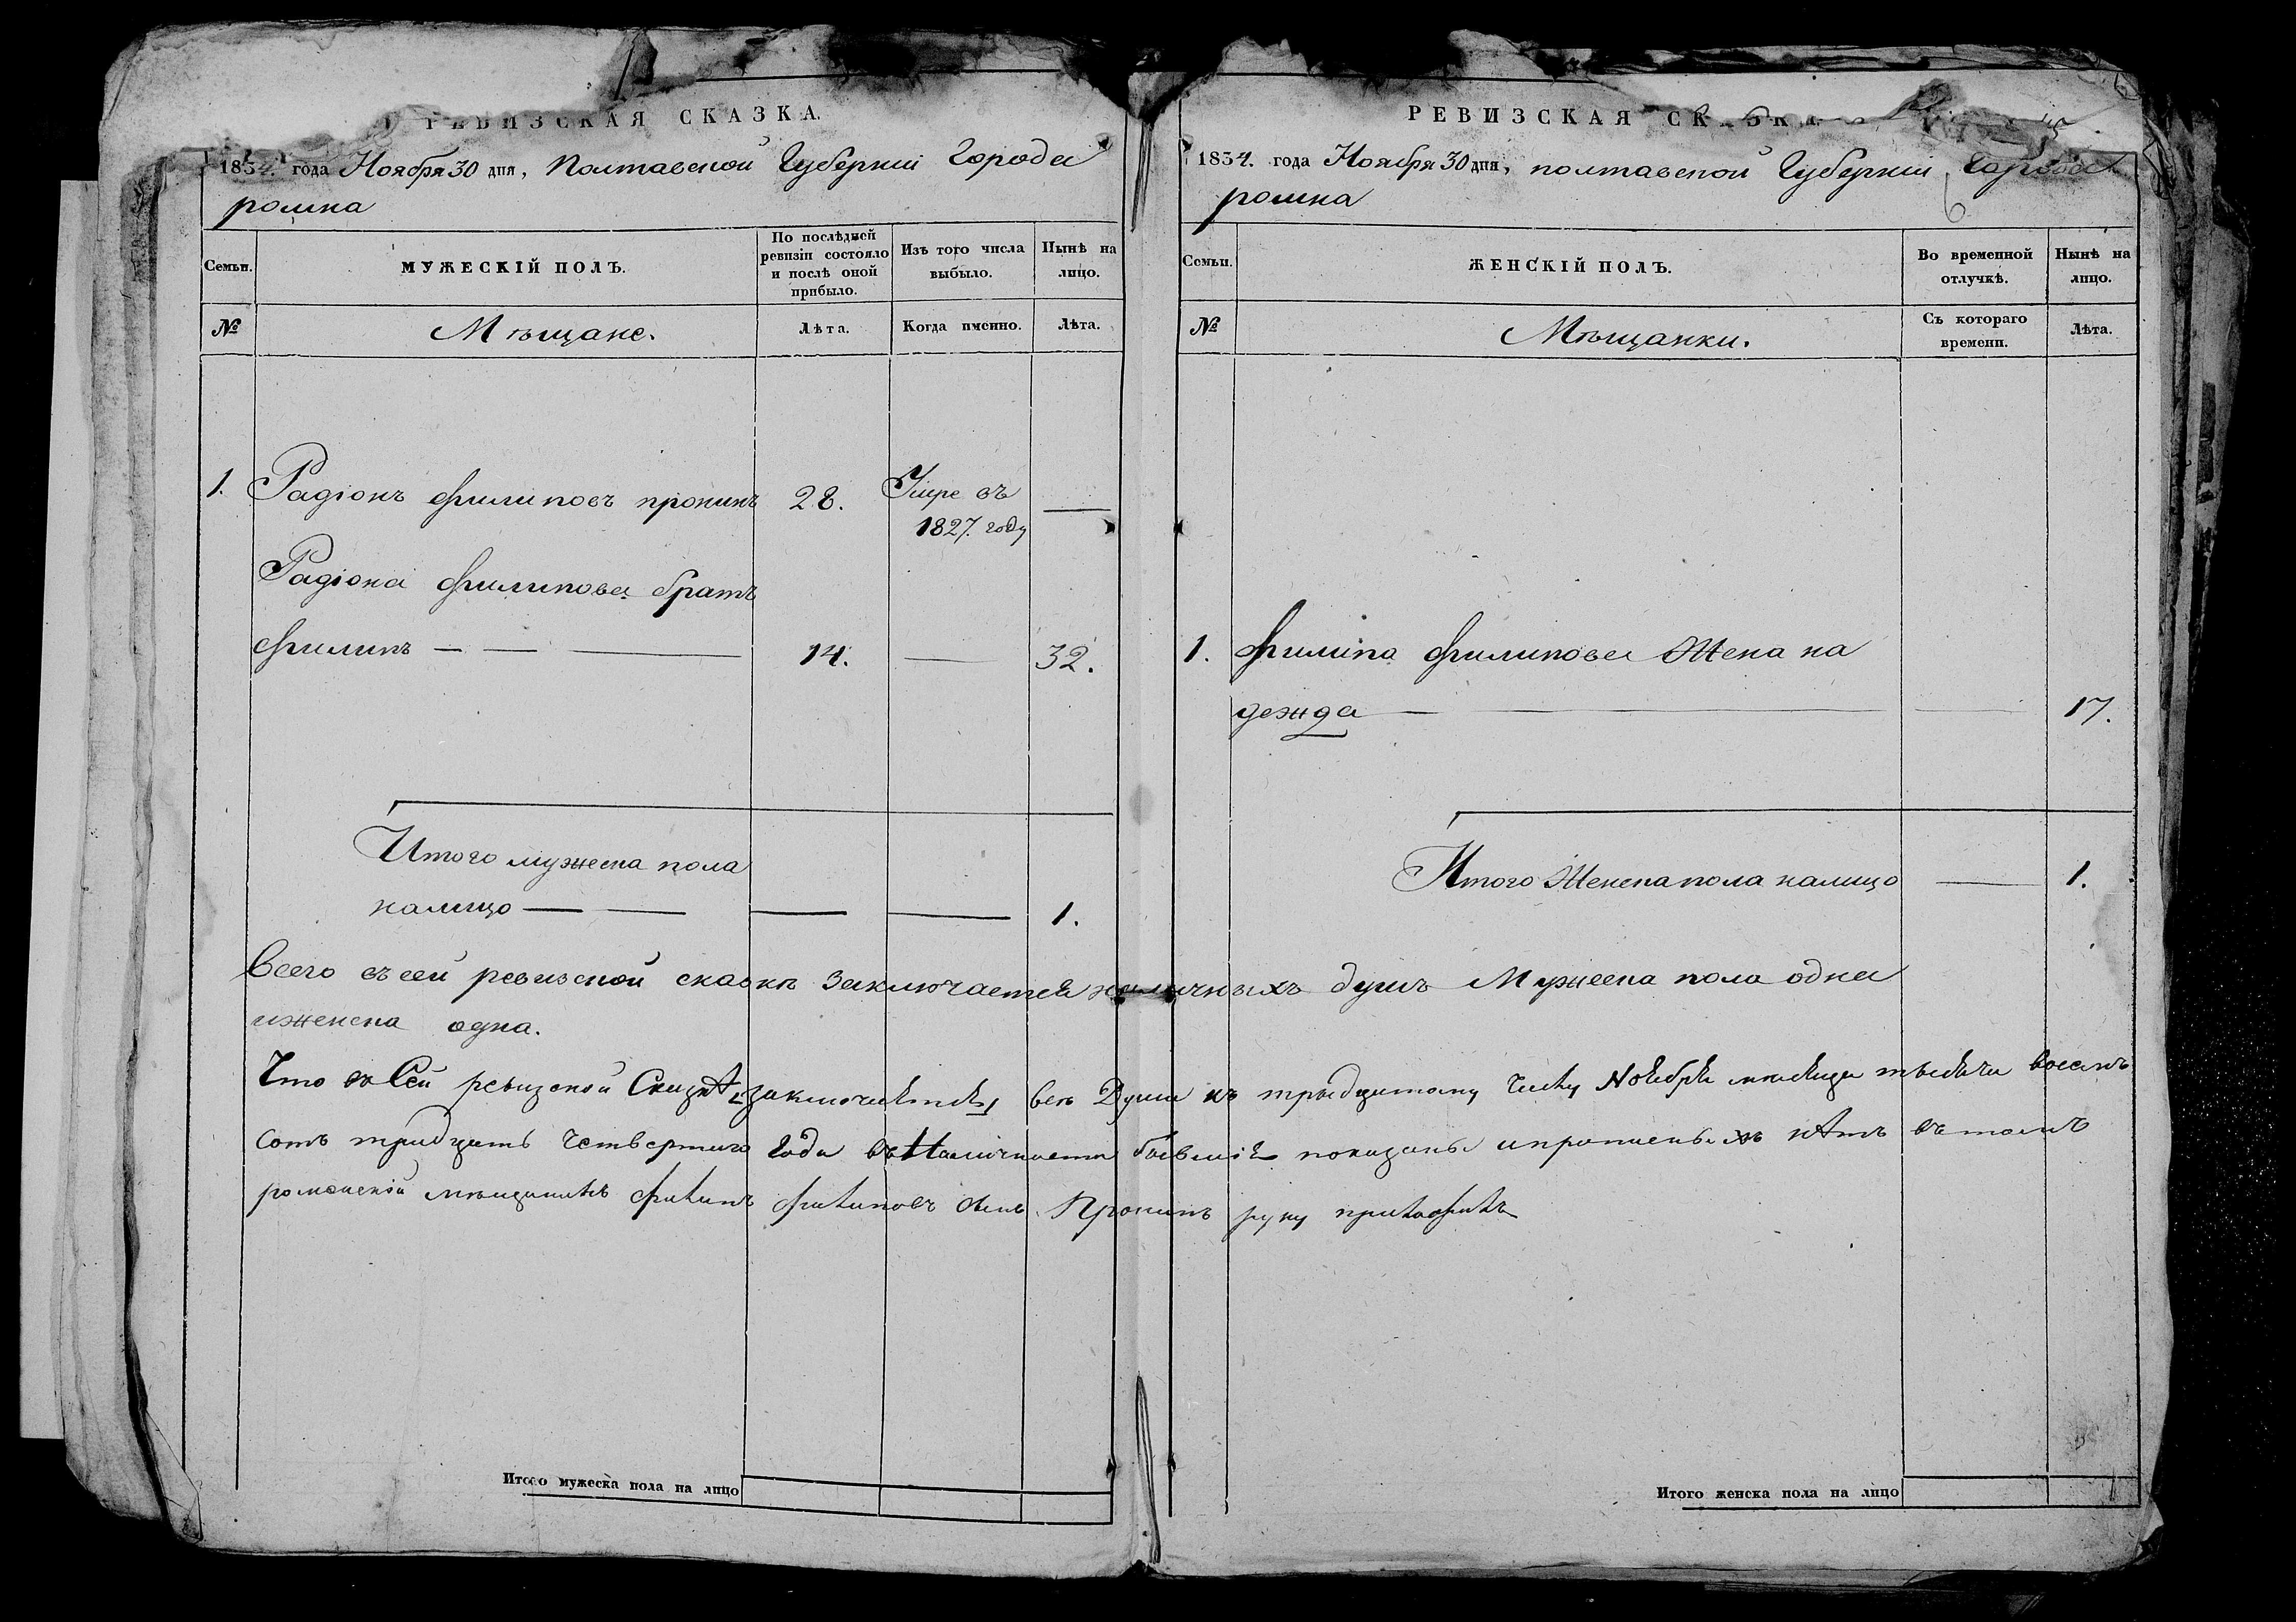 РЕВИЗСКАЯ СКАЗКА.
1834. года Ноября 30 дня, Полтавской Губерніи Города
ромна
Семьи.
МУЖЕСКІЙ ПОЛЪ.
По послѣдней ревизіи состояло и послѣ оной прибыло.
Изъ того числа выбыло.
Нынѣ на лицо.
№
Мѣщане.
Лѣта.
Когда именно.
Лѣта.
1. Радіонъ филиповъ пронинъ 28. Умре въ —
1827. году
Радіона филипова братъ
филипъ — — — 14. — 32.
Итого мужеска пола
налицо — — — — 1.
РЕВИЗСКАЯ СКАЗКА
1834. года Ноября 30 дня, полтавской Губерніи Города
ромна
6
Семьи.
ЖЕНСКІЙ ПОЛЪ.
Во временной отлучкѣ.
Нынѣ на лицо.
№
Мѣщанки.
Съ котораго времени.
Лѣта.
1. филипа филипова Жена на
дежда — — — 17.
Итого Женска пола налицо — 1.
Всего въ сей ревизской сказкѣ заключается наличныхъ душъ Мужеска пола одна
иженска одна.
Что въ Сей ревизской Сказкѣ заключаются все Души къ тридцатому числу Ноября месяца тысяча восемъ
сотъ тридцать Четвертаго Года въ Наличности бывшіе показаны ипрописныхъ нѣтъ въ томъ
роменскій мѣщанинъ филипъ филиповъ сынъ Пронинъ руку приложилъ
Итого мужеска пола на лицо
Итого женска пола на лицо